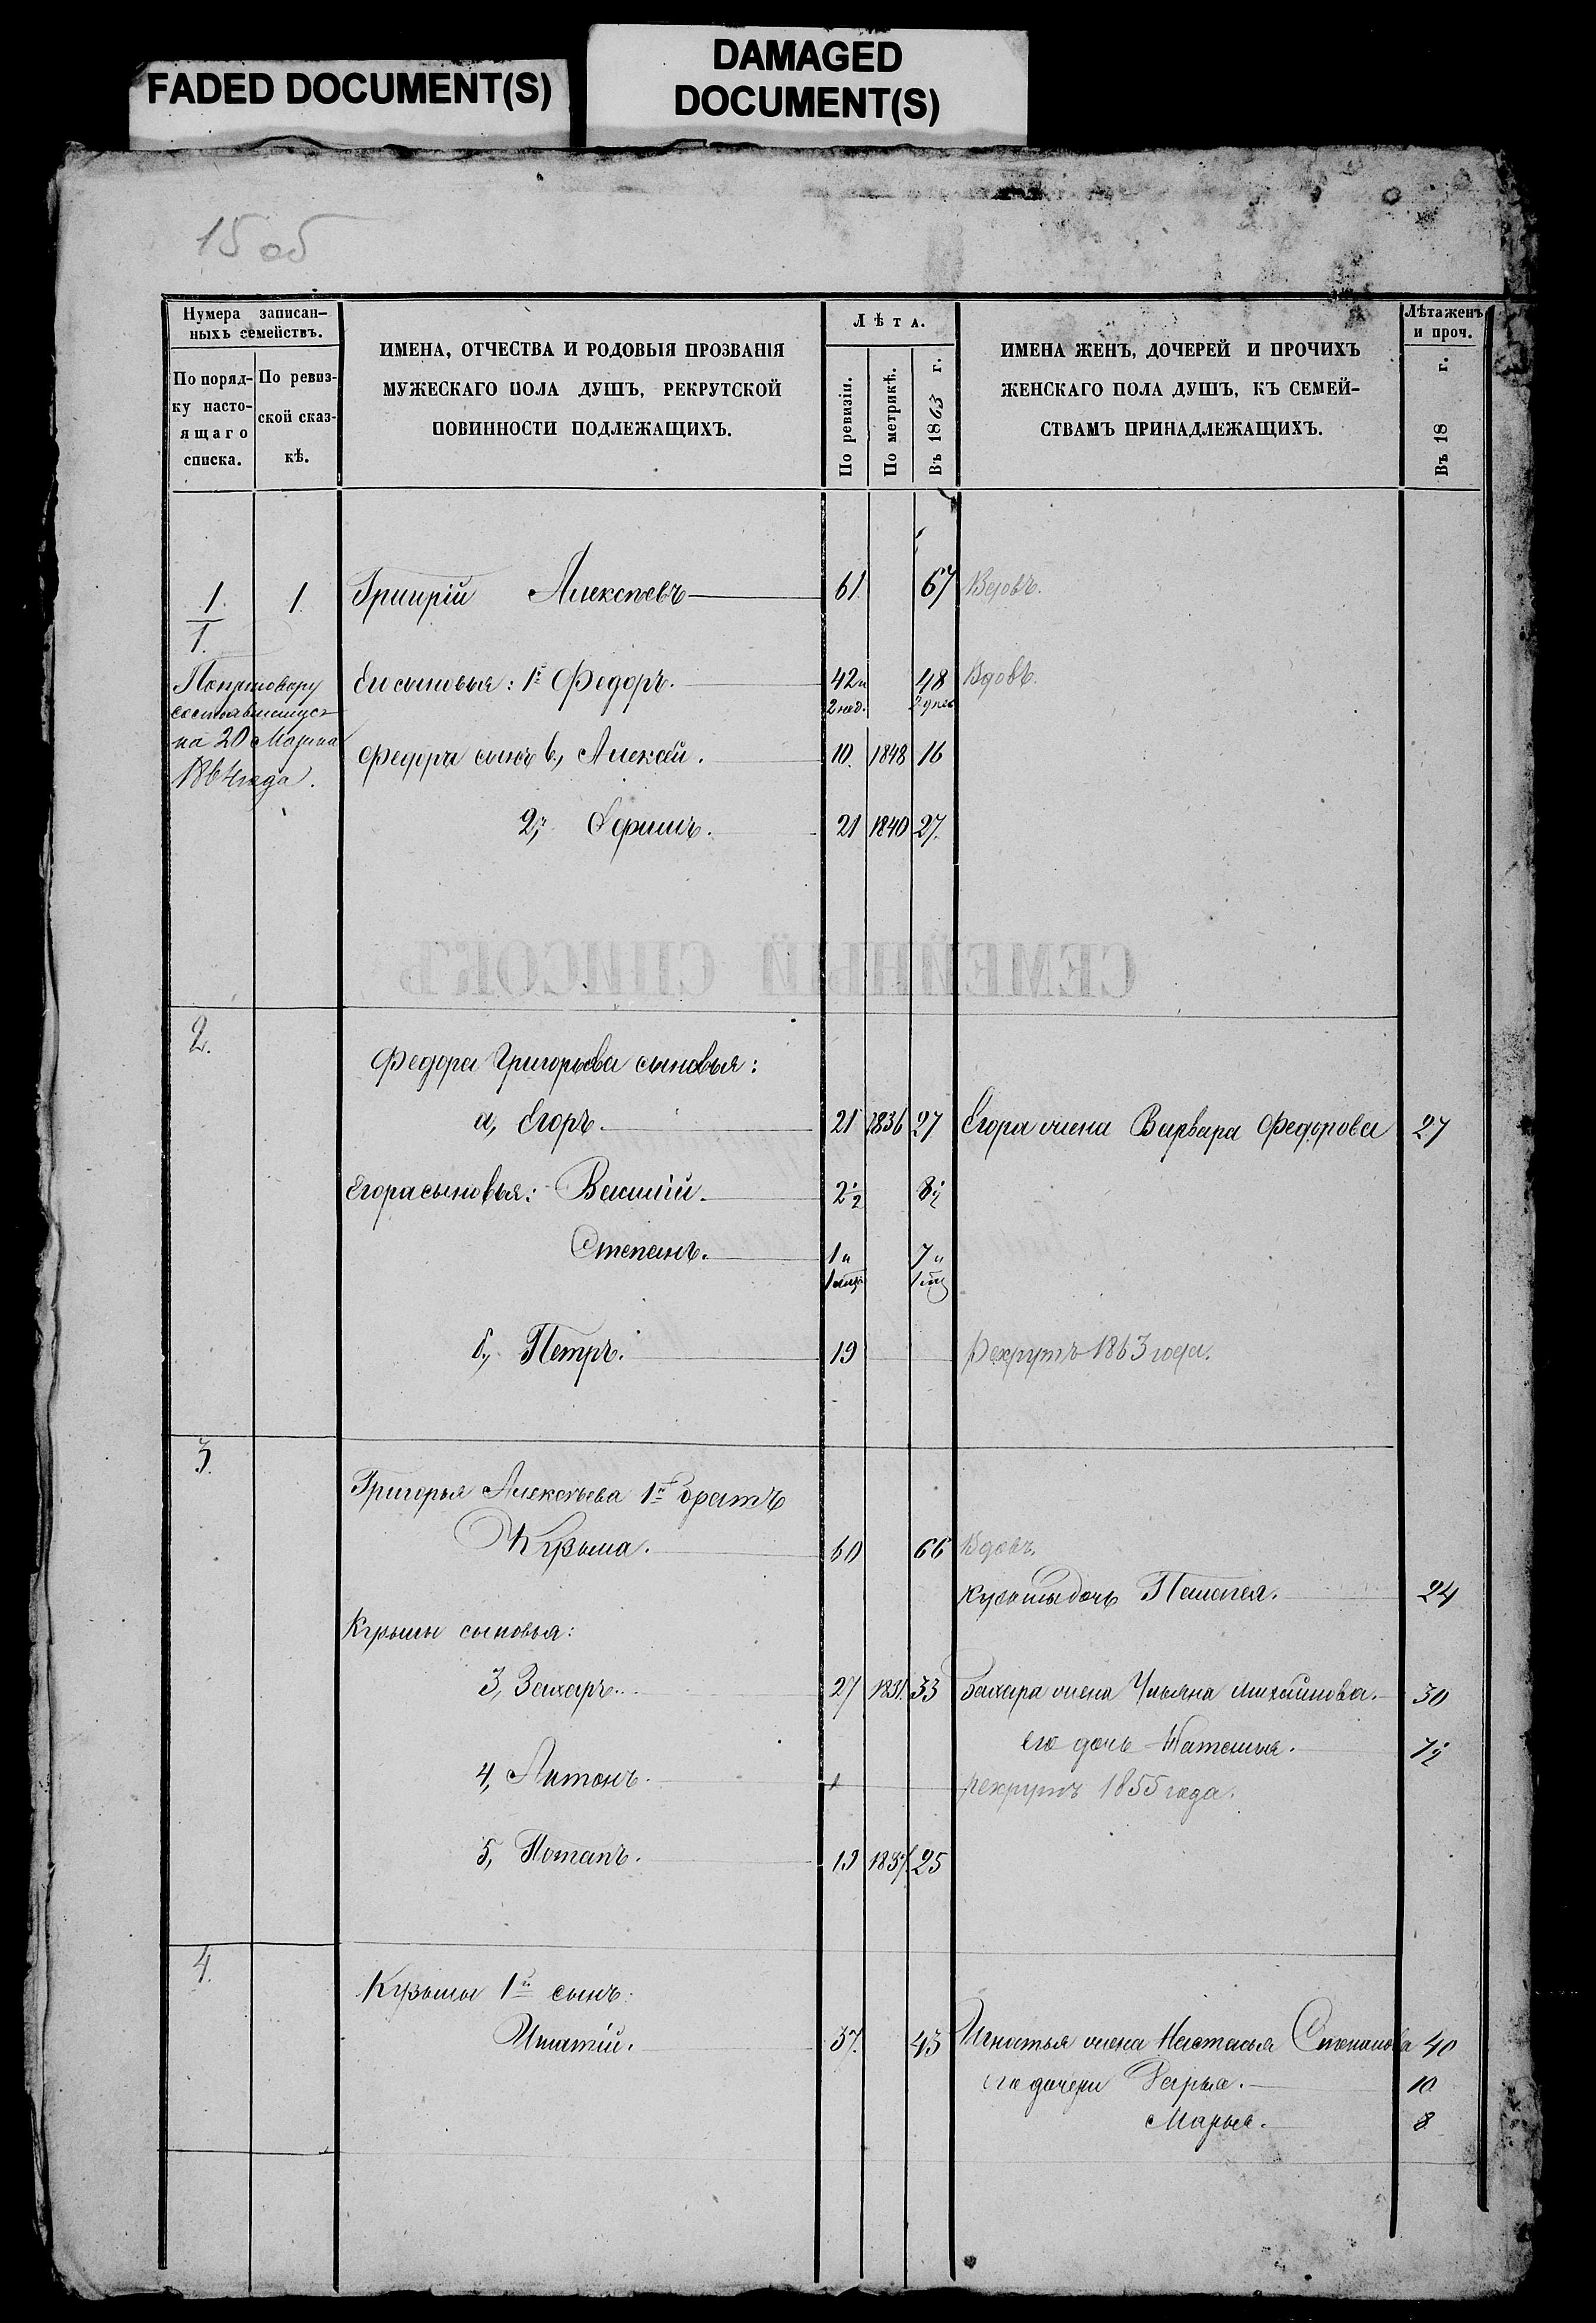 FADED DOCUMENT(S)
DAMAGED
DOCUMENT(S)
15 об
Нумера записан-
ныхъ семействъ.
По поряд-
ку насто-
ящаго
списка.
По ревиз-
ской сказ-
кѣ.
ИМЕНА, ОТЧЕСТВА И РОДОВЫЯ ПРОЗВАНІЯ
МУЖЕСКАГО ПОЛА ДУШЪ, РЕКРУТСКОЙ
ПОВИННОСТИ ПОДЛЕЖАЩИХЪ.
Лѣта.
По ревизіи.
По метрикѣ.
Въ 1863 г.
ИМЕНА ЖЕНЪ, ДОЧЕРЕЙ И ПРОЧИХЪ
ЖЕНСКАГО ПОЛА ДУШЪ, КЪ СЕМЕЙ-
СТВАМЪ ПРИНАДЛЕЖАЩИХЪ.
Лѣта женъ
и проч.
Въ 18 г.
1. 1. Григорій Алексѣевъ 61. 67 Вдовъ.
1.
По приговору
состоявшемуся
на 20 Марта
1864 года.
Его сыновья: 1й Федоръ. 42 и 48 Вдовъ.
2 нед. 2 нед
Федора сынъ в, Алексѣй. 10. 1848 16
2й Ефимъ. 21 1840 27.
СЕМЕЙНЫЙ СПИСОКЪ
2. Федора Григорьева сыновья:
а, Егоръ. 21 1836 27 Егора жена Варвара Федорова 27
Егора сыновья: Василій. 2½ 8½
Степанъ. 1 и 7 и
1 мѣц 1 мѣц
б, Петръ. 19 Рекрутъ 1863 года.
3. Григорья Алексѣева 1й братъ
Кузьма. 60 66 Вдовъ.
Кузьмы дочь Пелагея. 24
Кузьмы сыновья:
3, Захаръ. 27 1831. 33 Захара жена Ульяна Михайлова. 30
его дочь Наталья. 7½
4, Антонъ. рекрутъ 1855 года.
5, Потапъ. 19 1837. 25
4. Кузьмы 1й сынъ:
Игнатій. 37. 43 Игнатья жена Настасья Степанова 40
его дочери Дарья. 10
Марья. 8